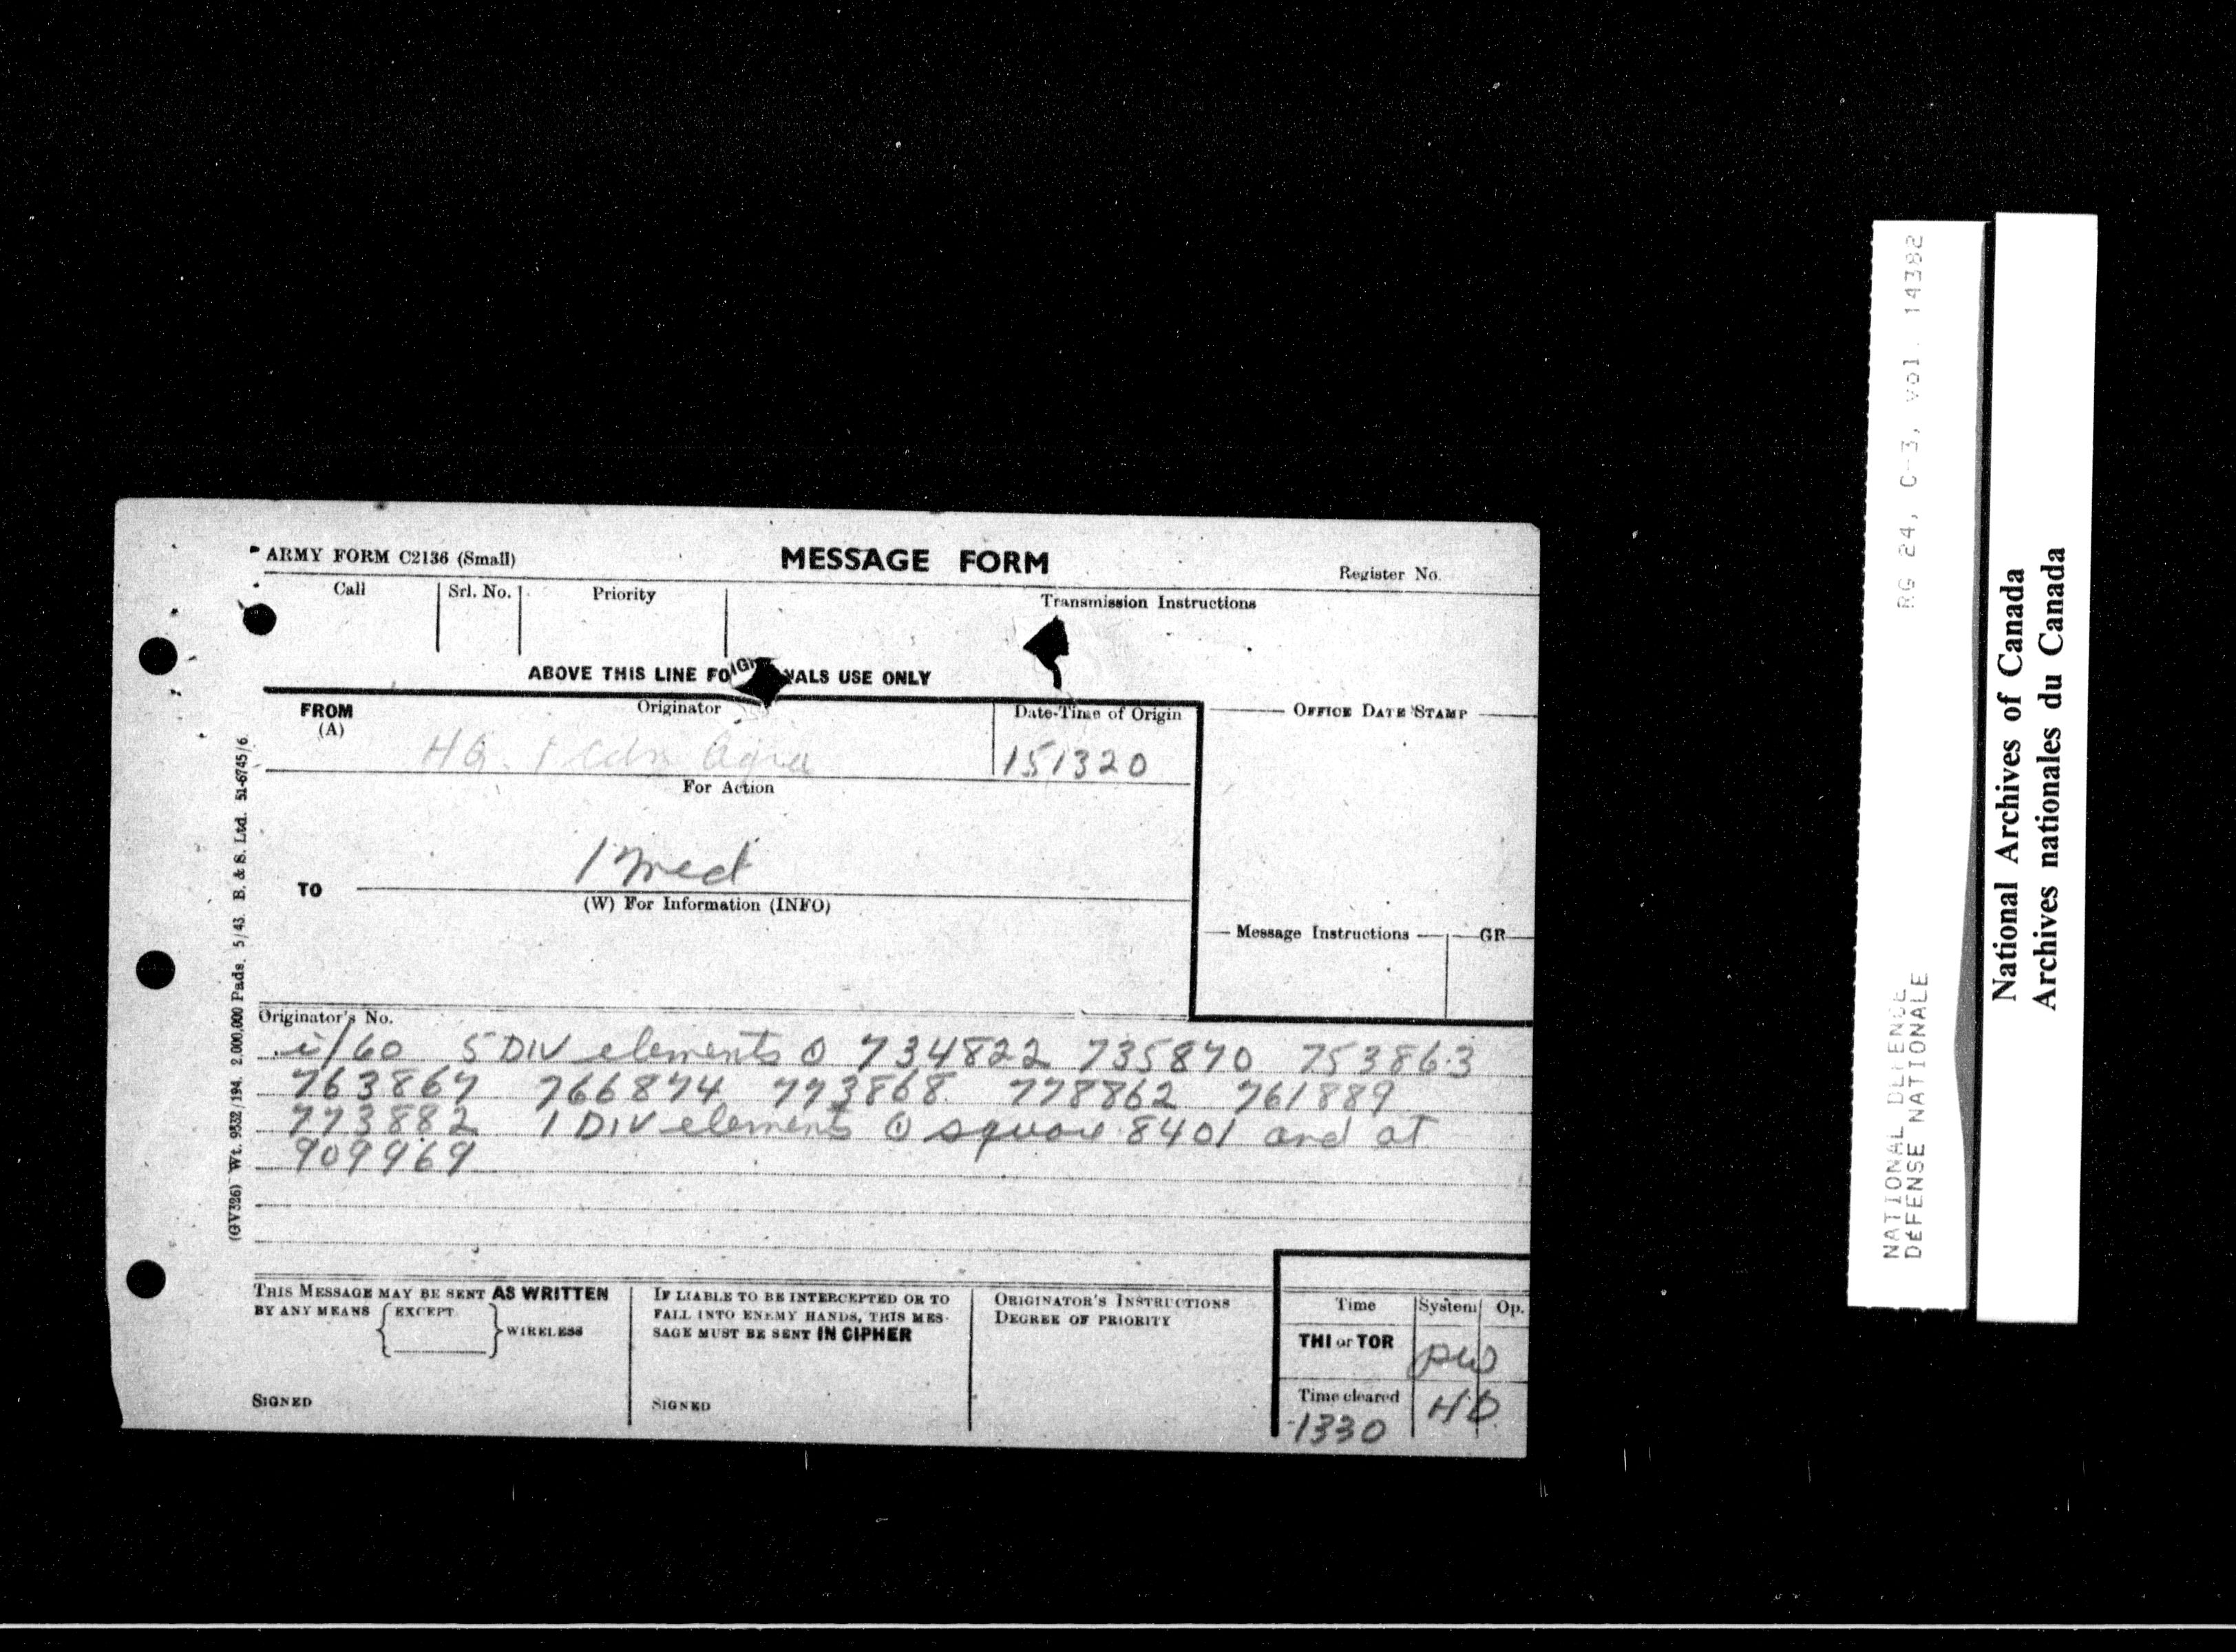 ARMY FORM C2136 (Small)
MESSAGE FORM
Register No.
Call
Srl. No.
Priority
Transmission Instructions
ABOVE THIS LINE FO IGNALS USE ONLY
FROM
(A)
Originator
Date-Time of Origin
OFFICE DATE STAMP
HQ. 1 Cdn Agra
151320
For Action
1 Med
TO
(W) For Information (INFO)
Message Instructions
GR
Originator's No.
i/60 5 DIV elements ① 734822 735870 753863
763867 766874 773868 778862 761889
773882 1 DIV elements ① square 8401 and at
909969
THIS MESSAGE MAY BE SENT AS WRITTEN
BY ANY MEANS EXCEPT
WIRELESS
SIGNED
IF LIABLE TO BE INTERCEPTED OR TO
FALL INTO ENEMY HANDS, THIS MES-
SAGE MUST BE SENT IN CIPHER
SIGNED
ORIGINATOR'S INSTRUCTIONS
DEGREE OF PRIORITY
Time
System
Op.
THI or TOR
Time cleared
1330
HD
(GV326) Wt. 9532/194. 2,000,000 Pads. 5/43. B. & S. Ltd. 51-6745/6
NATIONAL DEFENCE
DÉFENSE NATIONALE
RG 24, C-3, vol. 14382
National Archives of Canada
Archives nationales du Canada